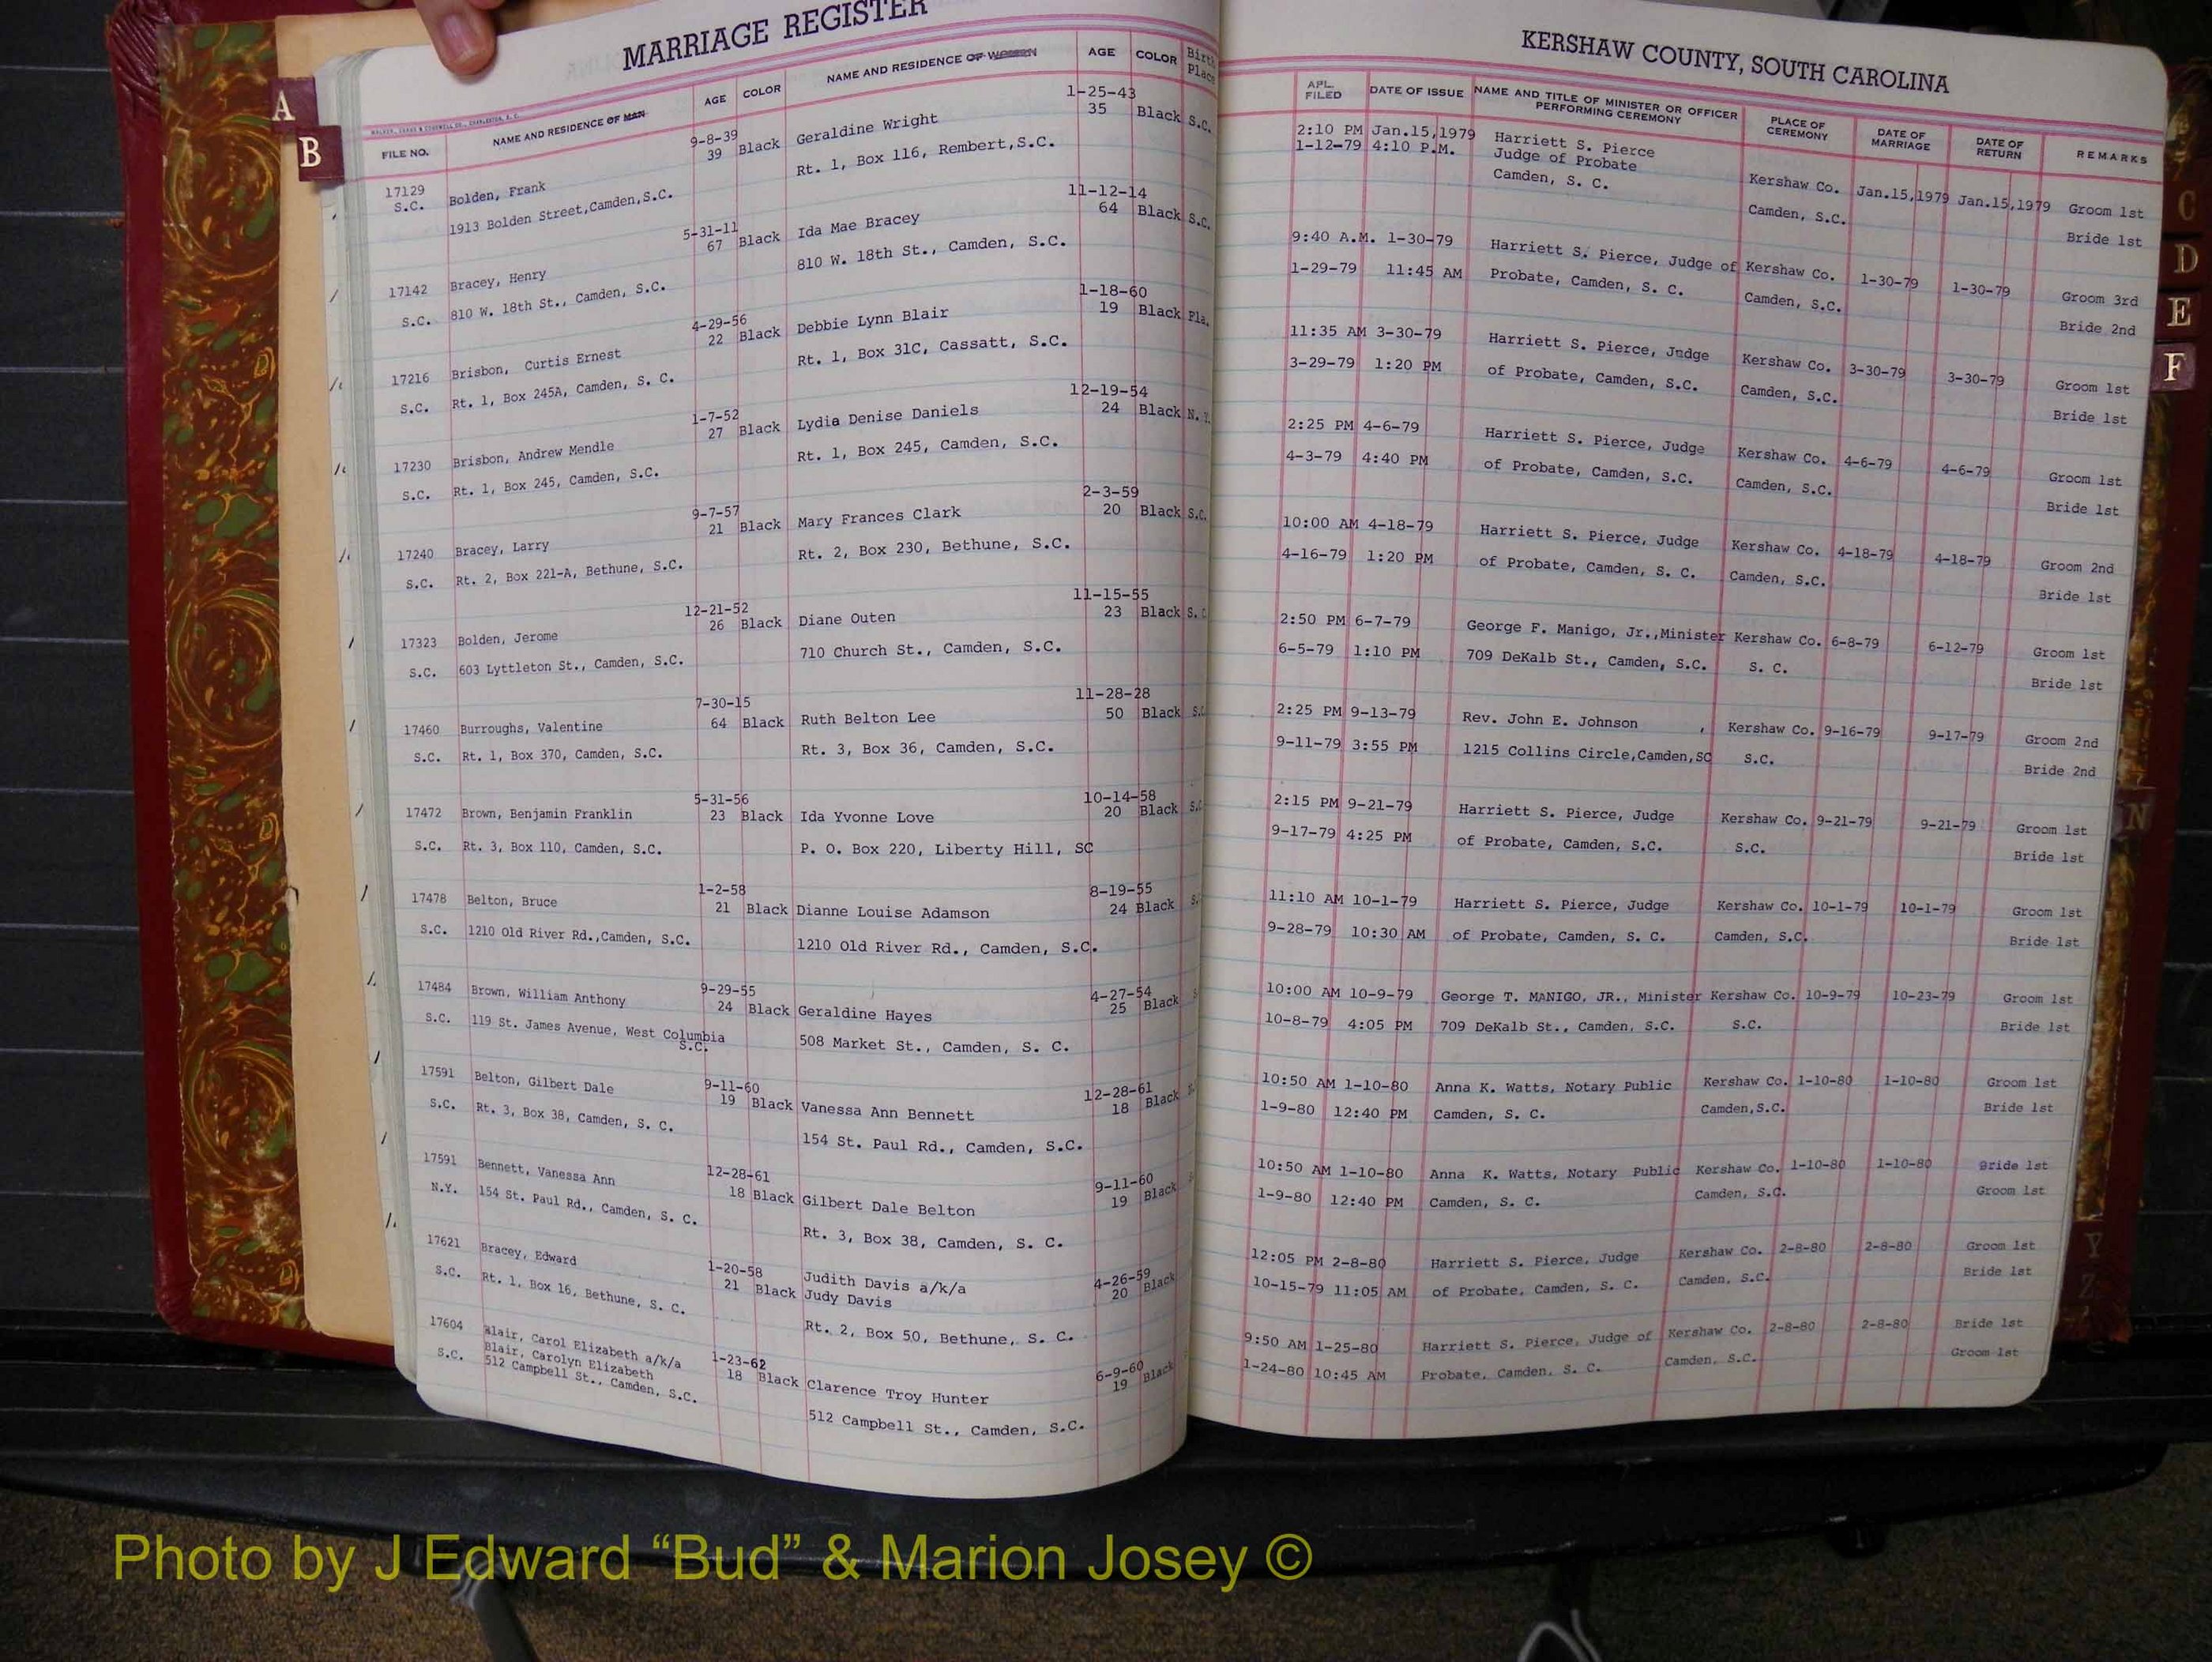 MARRIAGE REGISTER
KERSHAW COUNTY, SOUTH CAROLINA
A
B
C
D
E
F
N
Y
Z
FILE NO. NAME AND RESIDENCE OF MAN AGE COLOR NAME AND RESIDENCE OF WOMAN AGE COLOR Birth Place
APL. FILED DATE OF ISSUE NAME AND TITLE OF MINISTER OR OFFICER PERFORMING CEREMONY PLACE OF CEREMONY DATE OF MARRIAGE DATE OF RETURN REMARKS
9-8-39 1-25-43
17129 Bolden, Frank 39 Black Geraldine Wright 35 Black S.C.
S.C. 1913 Bolden Street,Camden,S.C. Rt. 1, Box 116, Rembert,S.C.
2:10 PM Jan.15,1979 Harriett S. Pierce
1-12-79 4:10 P.M. Judge of Probate Kershaw Co. Jan.15,1979 Jan.15,1979 Groom 1st
Camden, S. C. Camden, S.C. Bride 1st
5-31-11 11-12-14
17142 Bracey, Henry 67 Black Ida Mae Bracey 64 Black S.C.
S.C. 810 W. 18th St., Camden, S.C. 810 W. 18th St., Camden, S.C.
9:40 A.M. 1-30-79 Harriett S. Pierce, Judge of Kershaw Co. 1-30-79 1-30-79 Groom 3rd
1-29-79 11:45 AM Probate, Camden, S. C. Camden, S.C. Bride 2nd
4-29-56 1-18-60
17216 Brisbon, Curtis Ernest 22 Black Debbie Lynn Blair 19 Black Pla.
S.C. Rt. 1, Box 245A, Camden, S. C. Rt. 1, Box 31C, Cassatt, S.C.
11:35 AM 3-30-79 Harriett S. Pierce, Judge Kershaw Co. 3-30-79 3-30-79 Groom 1st
3-29-79 1:20 PM of Probate, Camden, S.C. Camden, S.C. Bride 1st
1-7-52 12-19-54
17230 Brisbon, Andrew Mendle 27 Black Lydia Denise Daniels 24 Black N.Y.
S.C. Rt. 1, Box 245, Camden, S.C. Rt. 1, Box 245, Camden, S.C.
2:25 PM 4-6-79 Harriett S. Pierce, Judge Kershaw Co. 4-6-79 4-6-79 Groom 1st
4-3-79 4:40 PM of Probate, Camden, S.C. Camden, S.C. Bride 1st
9-7-57 2-3-59
17240 Bracey, Larry 21 Black Mary Frances Clark 20 Black S.C.
S.C. Rt. 2, Box 221-A, Bethune, S.C. Rt. 2, Box 230, Bethune, S.C.
10:00 AM 4-18-79 Harriett S. Pierce, Judge Kershaw Co. 4-18-79 4-18-79 Groom 2nd
4-16-79 1:20 PM of Probate, Camden, S. C. Camden, S.C. Bride 1st
12-21-52 11-15-55
17323 Bolden, Jerome 26 Black Diane Outen 23 Black S. C
S.C. 603 Lyttleton St., Camden, S.C. 710 Church St., Camden, S.C.
2:50 PM 6-7-79 George F. Manigo, Jr.,Minister Kershaw Co. 6-8-79 6-12-79 Groom 1st
6-5-79 1:10 PM 709 DeKalb St., Camden, S.C. S. C. Bride 1st
7-30-15 11-28-28
17460 Burroughs, Valentine 64 Black Ruth Belton Lee 50 Black S.C
S.C. Rt. 1, Box 370, Camden, S.C. Rt. 3, Box 36, Camden, S.C.
2:25 PM 9-13-79 Rev. John E. Johnson , Kershaw Co. 9-16-79 9-17-79 Groom 2nd
9-11-79 3:55 PM 1215 Collins Circle,Camden,SC S.C. Bride 2nd
5-31-56 10-14-58
17472 Brown, Benjamin Franklin 23 Black Ida Yvonne Love 20 Black S.C
S.C. Rt. 3, Box 110, Camden, S.C. P. O. Box 220, Liberty Hill, SC
2:15 PM 9-21-79 Harriett S. Pierce, Judge Kershaw Co. 9-21-79 9-21-79 Groom 1st
9-17-79 4:25 PM of Probate, Camden, S.C. S.C. Bride 1st
1-2-58 8-19-55
17478 Belton, Bruce 21 Black Dianne Louise Adamson 24 Black
S.C. 1210 Old River Rd.,Camden, S.C. 1210 Old River Rd., Camden, S.C.
11:10 AM 10-1-79 Harriett S. Pierce, Judge Kershaw Co. 10-1-79 10-1-79 Groom 1st
9-28-79 10:30 AM of Probate, Camden, S. C. Camden, S.C. Bride 1st
9-29-55 4-27-54
17484 Brown, William Anthony 24 Black Geraldine Hayes 25 Black
S.C. 119 St. James Avenue, West Columbia S.C. 508 Market St., Camden, S. C.
10:00 AM 10-9-79 George T. MANIGO, JR., Minister Kershaw Co. 10-9-79 10-23-79 Groom 1st
10-8-79 4:05 PM 709 DeKalb St., Camden, S.C. S.C. Bride 1st
9-11-60 12-28-61
17591 Belton, Gilbert Dale 19 Black Vanessa Ann Bennett 18 Black
S.C. Rt. 3, Box 38, Camden, S. C. 154 St. Paul Rd., Camden, S.C.
10:50 AM 1-10-80 Anna K. Watts, Notary Public Kershaw Co. 1-10-80 1-10-80 Groom 1st
1-9-80 12:40 PM Camden, S. C. Camden,S.C. Bride 1st
12-28-61 9-11-60
17591 Bennett, Vanessa Ann 18 Black Gilbert Dale Belton 19 Black
N.Y. 154 St. Paul Rd., Camden, S. C. Rt. 3, Box 38, Camden, S. C.
10:50 AM 1-10-80 Anna K. Watts, Notary Public Kershaw Co. 1-10-80 1-10-80 Bride 1st
1-9-80 12:40 PM Camden, S. C. Camden, S.C. Groom 1st
1-20-58 Judith Davis a/k/a 4-26-59
17621 Bracey, Edward 21 Black Judy Davis 20 Black
S.C. Rt. 1, Box 16, Bethune, S. C. Rt. 2, Box 50, Bethune, S. C.
12:05 PM 2-8-80 Harriett S. Pierce, Judge Kershaw Co. 2-8-80 2-8-80 Groom 1st
10-15-79 11:05 AM of Probate, Camden, S. C. Camden, S.C. Bride 1st
17604 Blair, Carol Elizabeth a/k/a 1-23-62 6-9-60
Blair, Carolyn Elizabeth 18 Black Clarence Troy Hunter 19 Black
S.C. 512 Campbell St., Camden, S.C. 512 Campbell St., Camden, S.C.
9:50 AM 1-25-80 Harriett S. Pierce, Judge of Kershaw Co. 2-8-80 2-8-80 Bride 1st
1-24-80 10:45 AM Probate, Camden, S. C. Camden, S.C. Groom 1st
Photo by J Edward “Bud” & Marion Josey ©